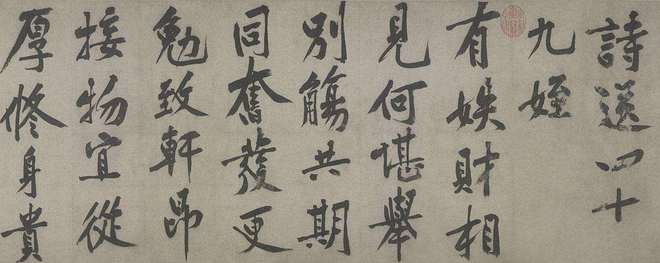 詩送四十
九姪
有娛財相
見何堪舉
別觴共期
同奮發更
勉致軒昂
接物宜從
厚脩身貴